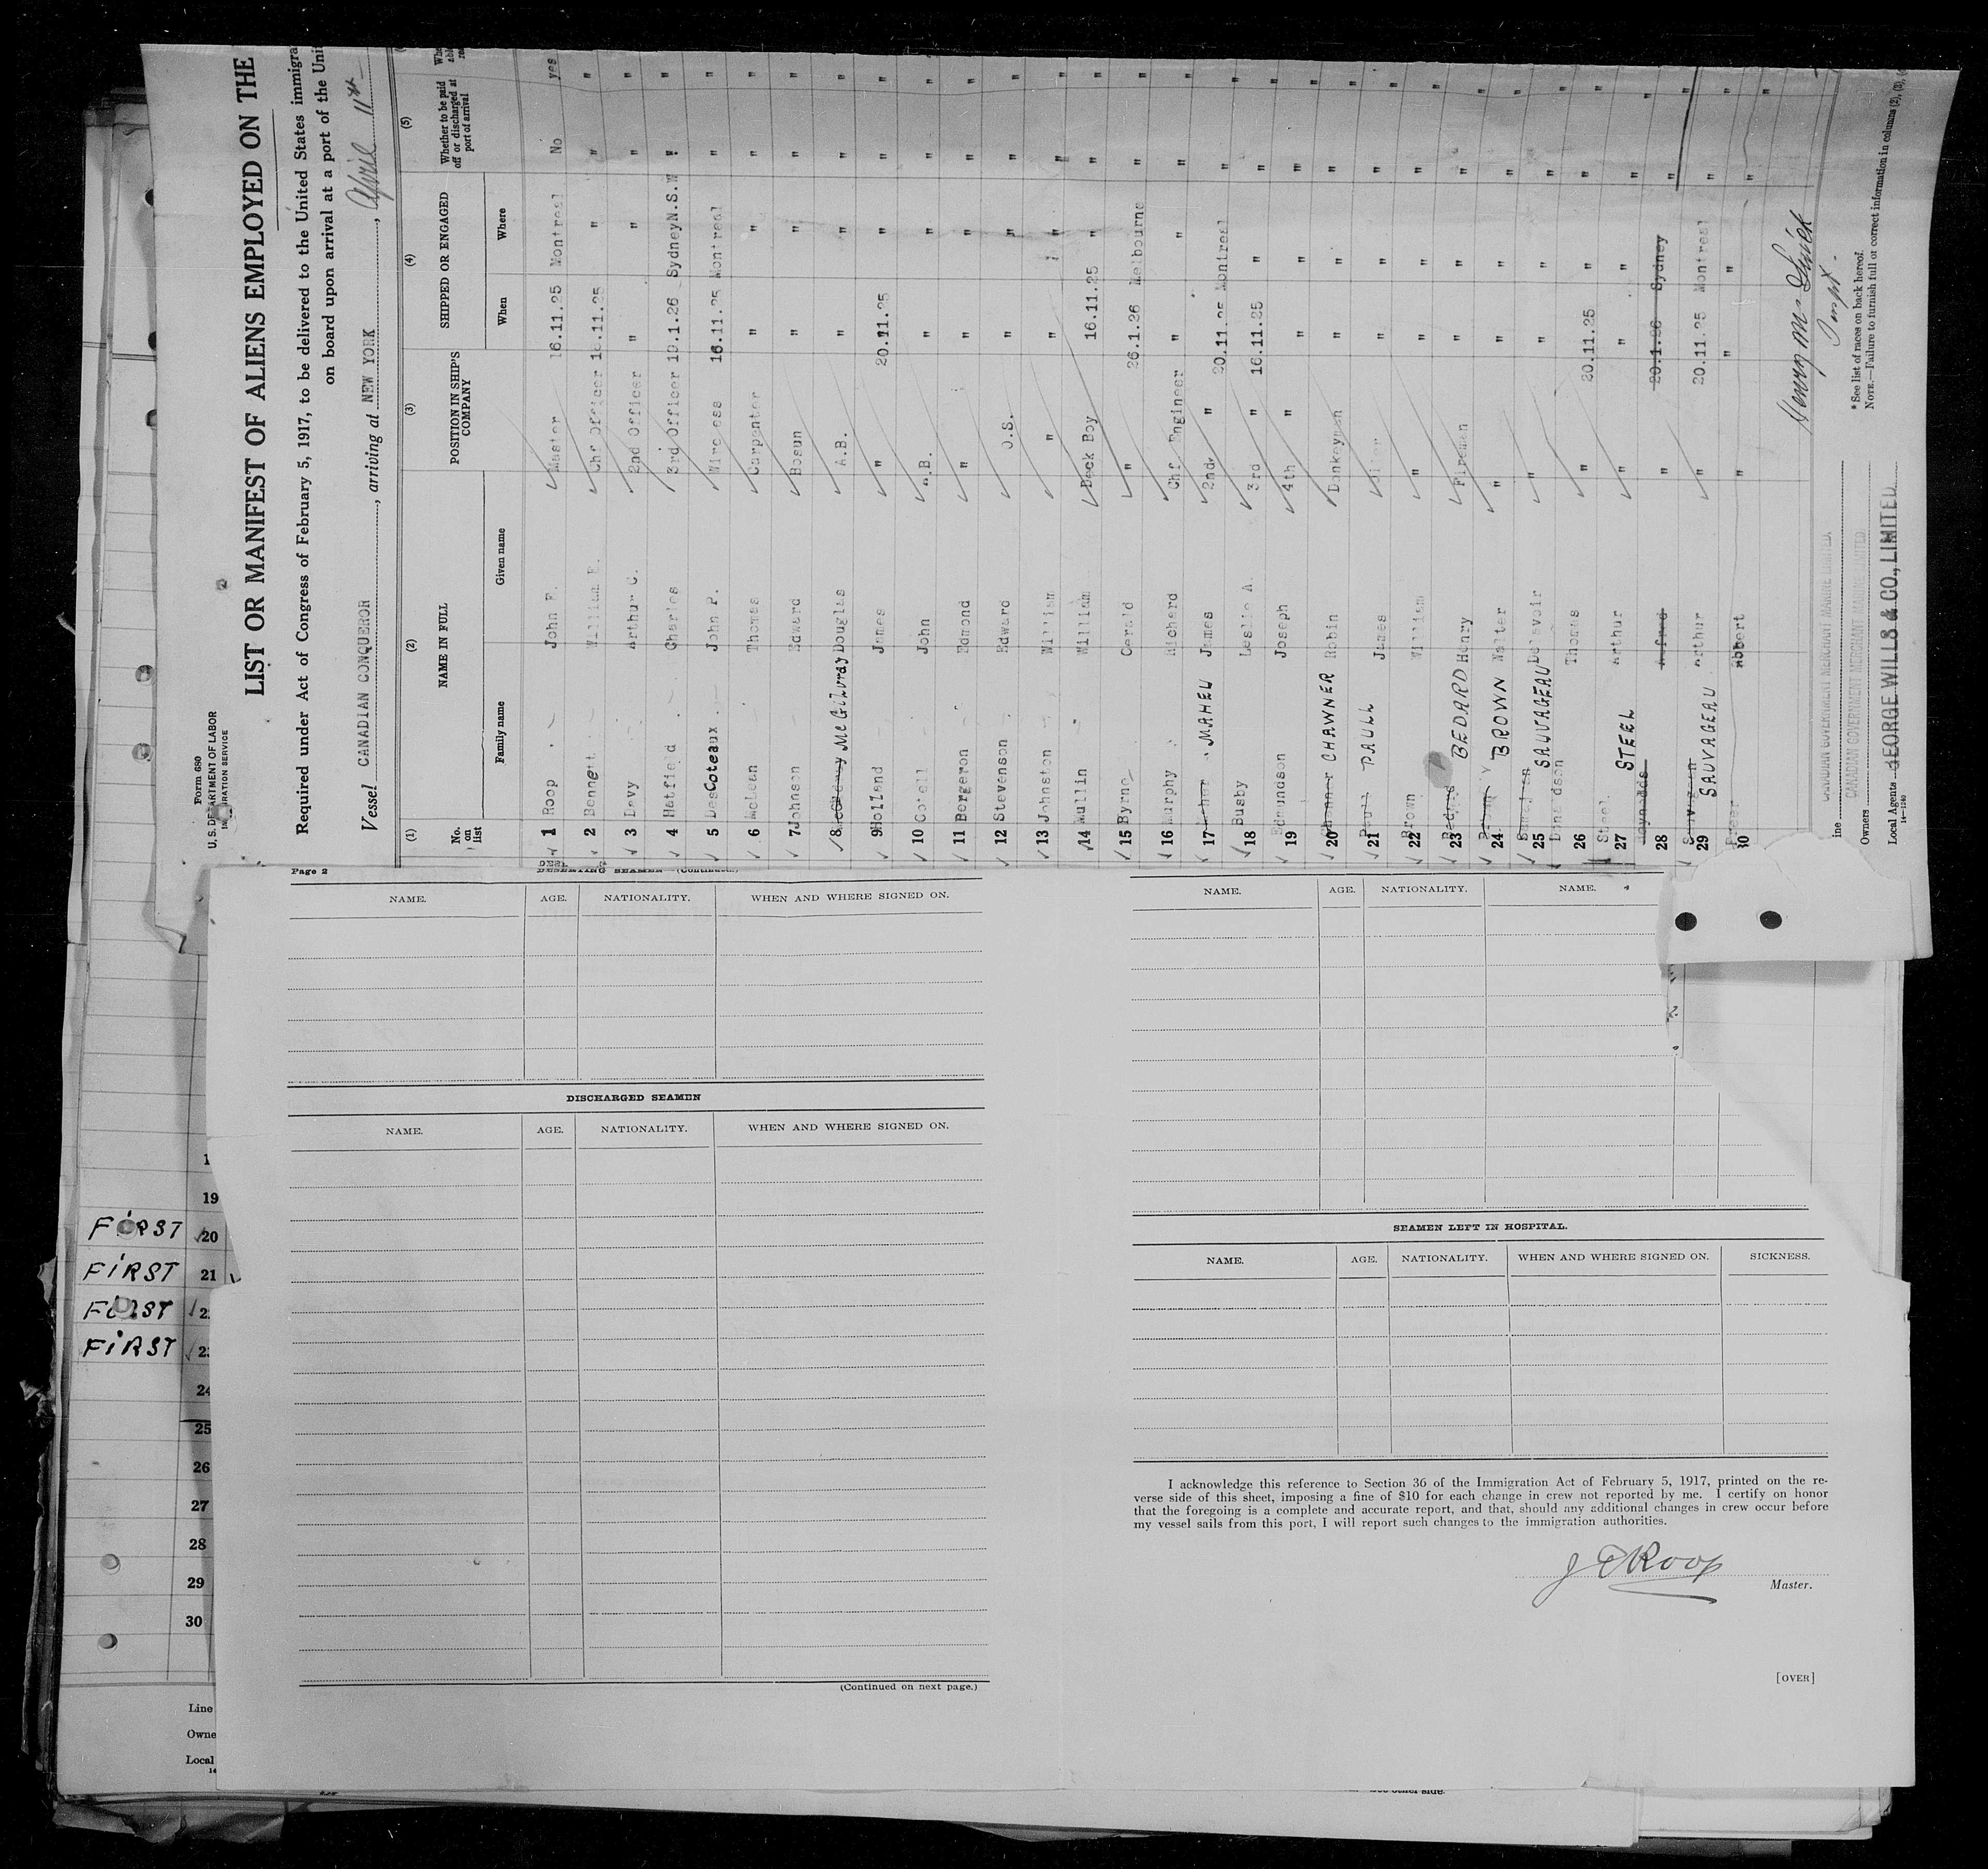 Form 680
U. S. DEPARTMENT OF LABOR
IMMIGRATION SERVICE
LIST OR MANIFEST OF ALIENS EMPLOYED ON THE
Required under Act of Congress of February 5, 1917, to be delivered to the United States immigra
on board upon arrival at a port of the Uni
Vessel CANADIAN CONQUEROR, arriving at NEW YORK, April 11th
(1) (2) (3) (4) (5)
No. on list NAME IN FULL POSITION IN SHIP'S COMPANY SHIPPED OR ENGAGED Whether to be paid off or discharged at port of arrival
Family name Given name When Where
1 Roop John F. Master 16.11.25 Montreal No yes
2 Bennett William Chf Officer 16.11.25 " " "
3 Levy Arthur C. 2nd Officer " " " "
4 Hatfield Charles 3rd Officer 19.1.26 Sydney N.S.W " "
5 DesCoteaux John P. Wireless 16.11.25 Montreal " "
6 McLean Thomas Carpenter " " " "
7 Johnson Edward Bosun " " " "
8 McGilvray Douglas A.B. " " " "
9 Holland James " 20.11.25 " " "
10 John A.B. " " " "
11 Bergeron Edmond " " " " "
12 Stevenson Edward O.S. " " " "
13 Johnston William " " " " "
14 Mullin William Deck Boy 16.11.25 " " "
15 Byrne Gerald " 26.1.26 Melbourne " "
16 Murphy Richard Chf Engineer " " " "
17 MAHEU James 2nd " 20.11.25 Montreal " "
18 Busby Leslie A. 3rd " 16.11.25 " " "
19 Edmundson Joseph 4th " " " " "
20 Channer CHAWNER Robin Donkeyman " " " "
21 PAULL James " " " "
22 Brown William " " " " "
23 BEDARD Henry Fireman " " " "
24 BROWN Walter " " " " "
25 SAUVAGEAU " " " " "
26 Donaldson Thomas " 20.11.25 " " "
27 Steel STEEL Arthur " " " " "
28 Reynolds Alfred " 20.1.26 Sydney " "
29 SAUVAGEAU Arthur " 20.11.25 Montreal " "
30 " " " " "
Henry M
CANADIAN GOVERNMENT MERCHANT MARINE LIMITED.
Owners CANADIAN GOVERNMENT MERCHANT MARINE LIMITED
Local Agents GEORGE WILLS & CO., LIMITED
14—1240
* See list of races on back hereof.
NOTE.—Failure to furnish full or correct information in columns (2), (3),
Page 2
DESERTING SEAMEN (Continued)
NAME. AGE. NATIONALITY. WHEN AND WHERE SIGNED ON.
DISCHARGED SEAMEN
NAME. AGE. NATIONALITY. WHEN AND WHERE SIGNED ON.
(Continued on next page.)
NAME. AGE. NATIONALITY. NAME.
SEAMEN LEFT IN HOSPITAL.
NAME. AGE. NATIONALITY. WHEN AND WHERE SIGNED ON. SICKNESS.
I acknowledge this reference to Section 36 of the Immigration Act of February 5, 1917, printed on the re-
verse side of this sheet, imposing a fine of $10 for each change in crew not reported by me. I certify on honor
that the foregoing is a complete and accurate report, and that, should any additional changes in crew occur before
my vessel sails from this port, I will report such changes to the immigration authorities.
J F Roop
Master.
[OVER]
19
FiRST 20
FiRST 21
FiRST 2
FiRST 2
24
25
26
27
28
29
30
Line
Owne
Local
14
See other side.